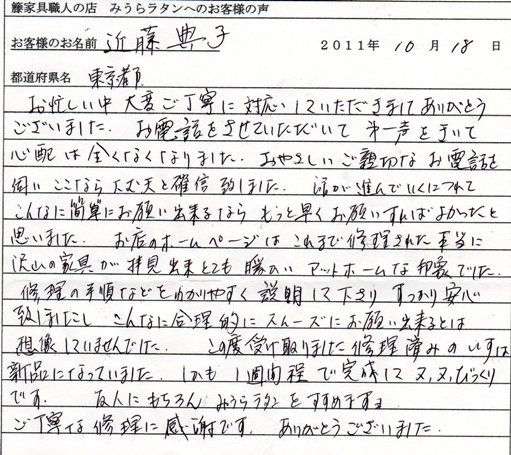 籐家具職人の店 みうらラタンへのお客様の声
お客様のお名前 近藤 典子 2011年 10月 18日
都道府県名 東京都
お忙しい中 大変ご丁寧に対応していただきまして ありがとう
ございました. お電話をさせていただいて 第一声を聞いて
心配は全くなくなりました. おやさしいご親切なお電話を
伺い ここなら大丈夫と確信致しました. 話が進んでいくにつれて
こんなに簡単にお願い出来るなら もっと早くお願いすればよかったと
思いました. お店のホームページは これまで修理された本当に
沢山の家具が拝見出来とても 暖かい アットホームな印象でした.
修理の手順などをわかりやすく説明して下さり すっかり安心
致しましたし こんなに合理的にスムーズにお願い出来るとは
想像していませんでした. この度受け取りました修理済みのいすは
新品になっていました. しかも 1週間程で完成して 又,又,びっくり
です. 友人にもちろん みうらラタンをすすめます。
ご丁寧な修理に感謝です. ありがとうございました.